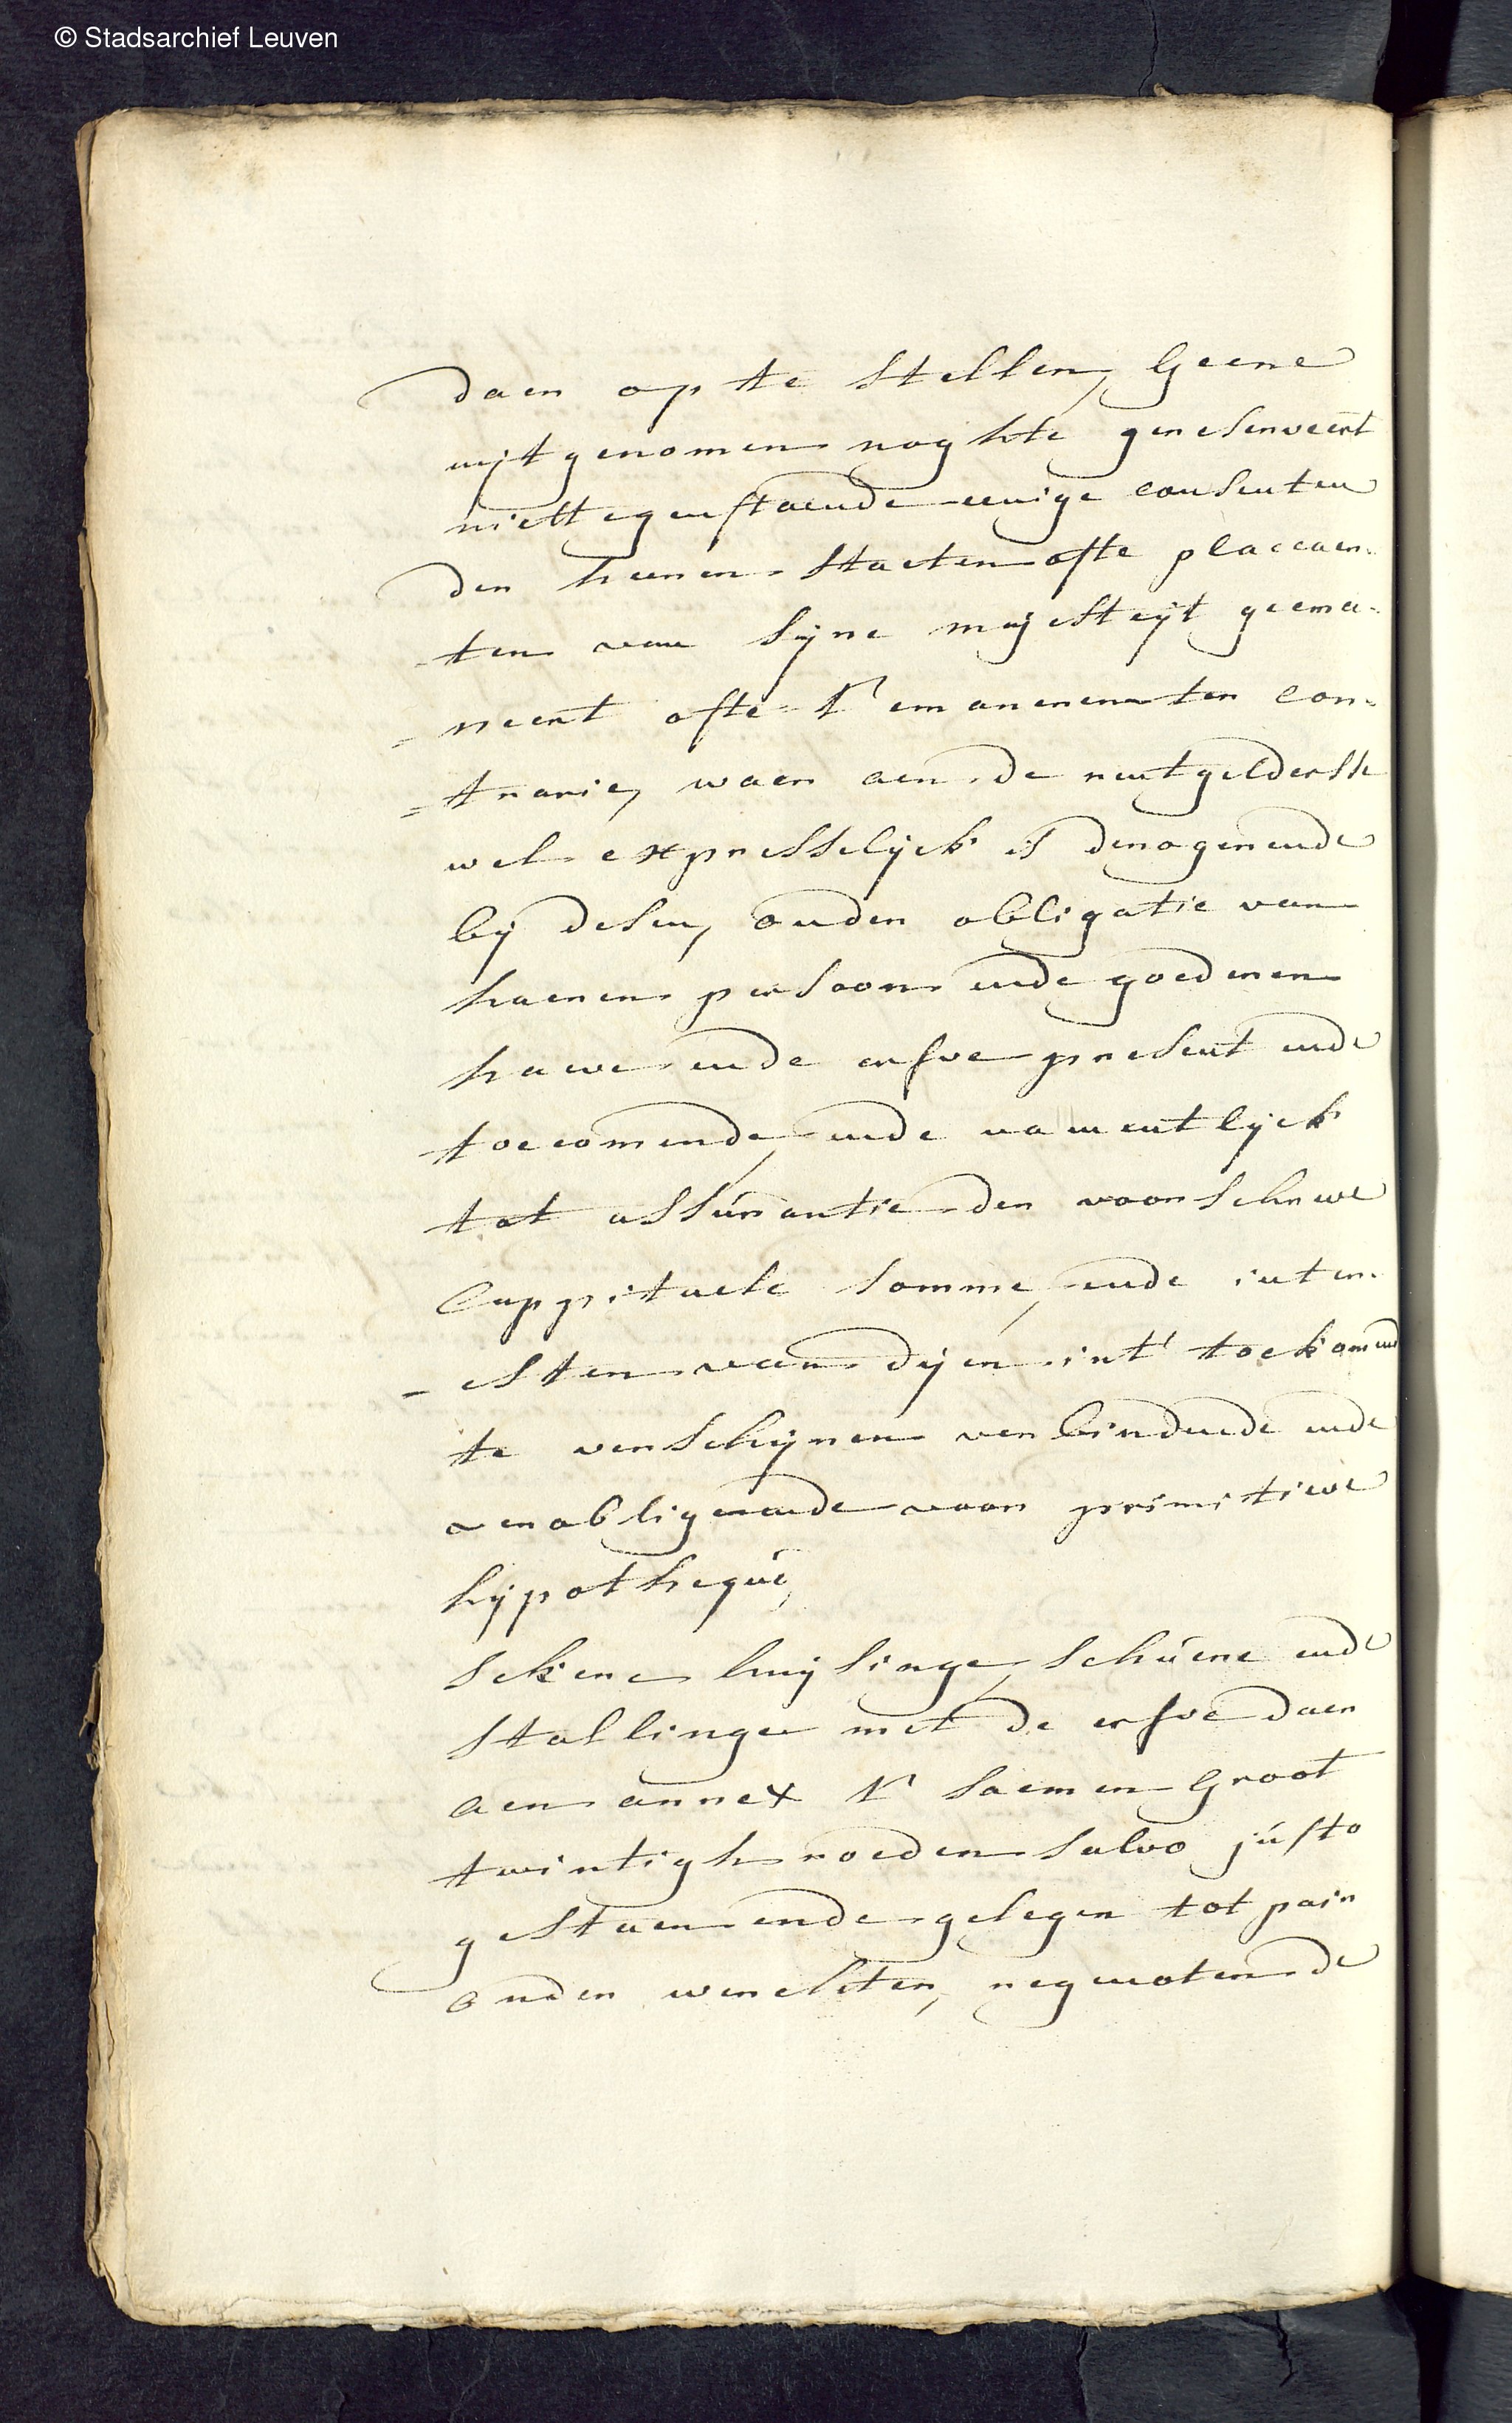 © Stadsarchief Leuven
daer op te stellen, geene
uijtgenomen noghte gereserveert
niettegenstaende eenige consenten
der heeren staeten ofte placcaer-
-ten van sijne majesteijt geema-
=neert ofte t' emaneneren ter con-
=trarie, waer aen de rentgeldersse
wel expresselijck is derogerende
bij desen, onder obligatie van
haeren persoon ende goederen
haeve ende erfve present ende
toecomende, ende namentlijck
tot assurantie der voorschreve
cappitaele somme, ende inter-
-esten van dijen int' toekomend
te verschijnen verbindende ende
verobligerende voor primitieve
hijpotheque,
sekere huijsinge, schuere ende
stallinge met de erfve daer
aen annex t' saemen groot
twintigh roeden salvo justo
gestaen ende gelegen tot pair
onder werchter, regenoten de